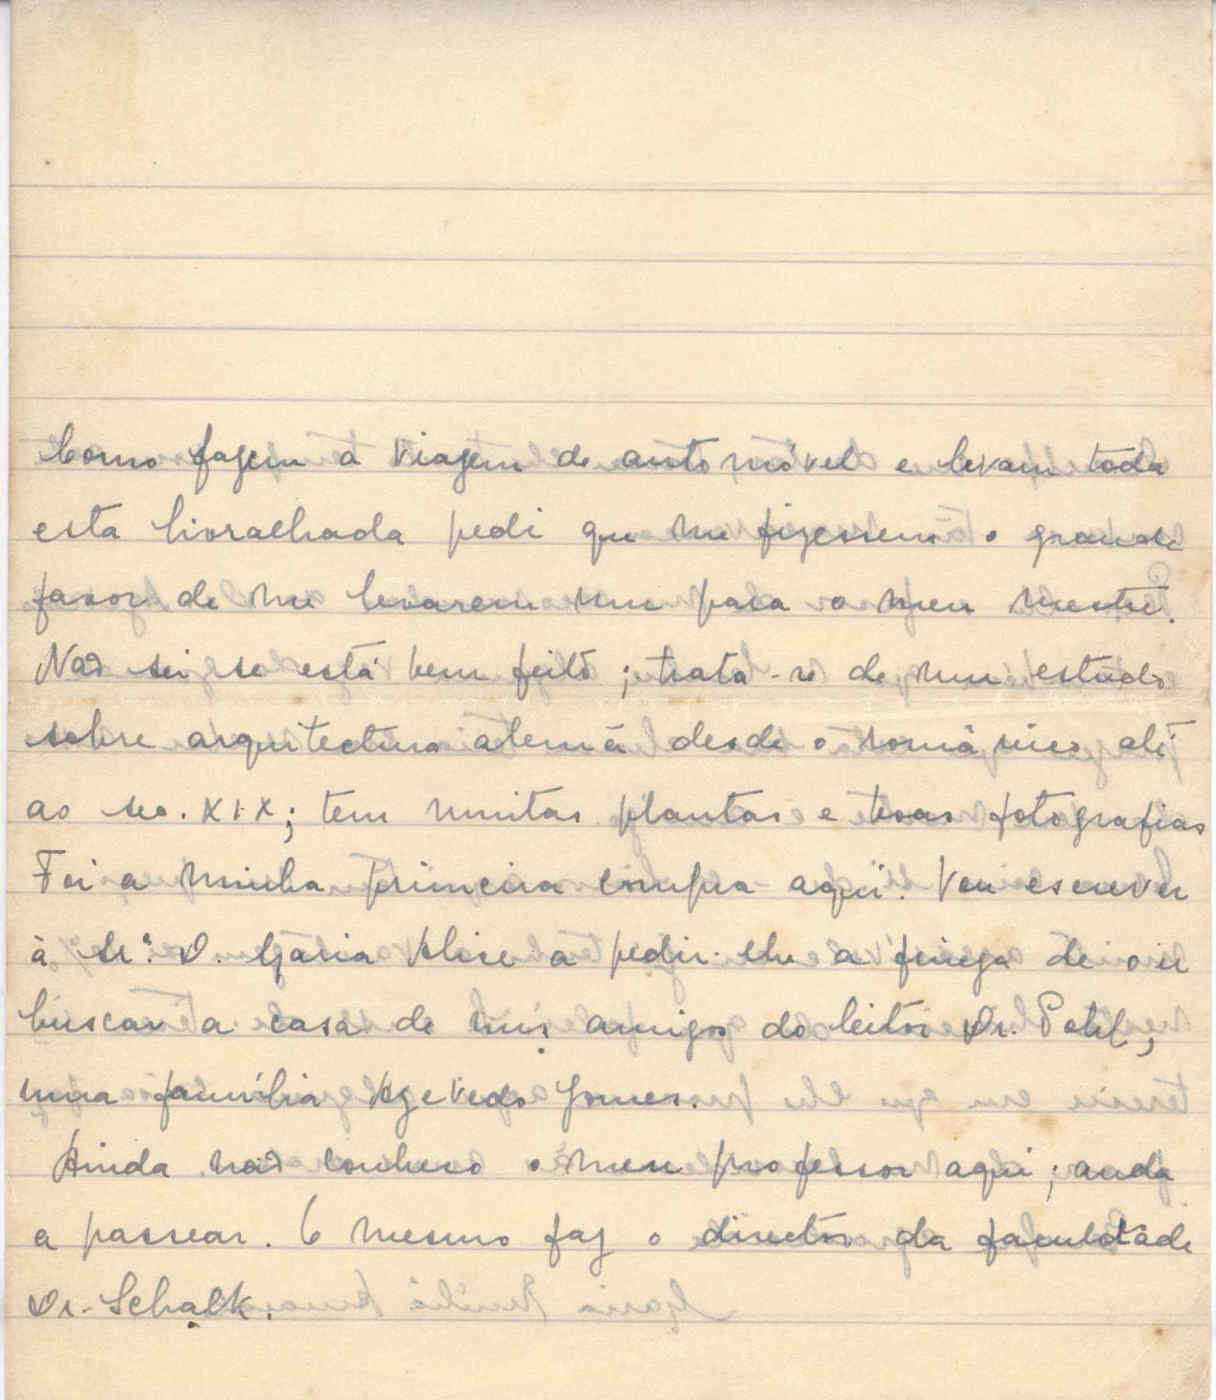 Como fazem a viagem de automóvel e levam toda
esta livralhada pedi que me fizessem o grande
favor de me levarem um para o meu mestre.
Não sei se está bem feito; trata-se de um estudo
sobre arquitectura alemã desde o românico até
ao sec. XIX; tem muitas plantas e boas fotografias
Foi a minha primeira compra aqui. Vou escrever
à Sr.ª D. Maria Alice a pedir-lhe a fineza de o ir
buscar a casa de uns amigos do leitor Dr. Pohl,
uma família Azevedo Gomes.
Ainda não conheço o meu professor aqui; anda
a passear. O mesmo faz o director da faculdade
Dr. Schalk.